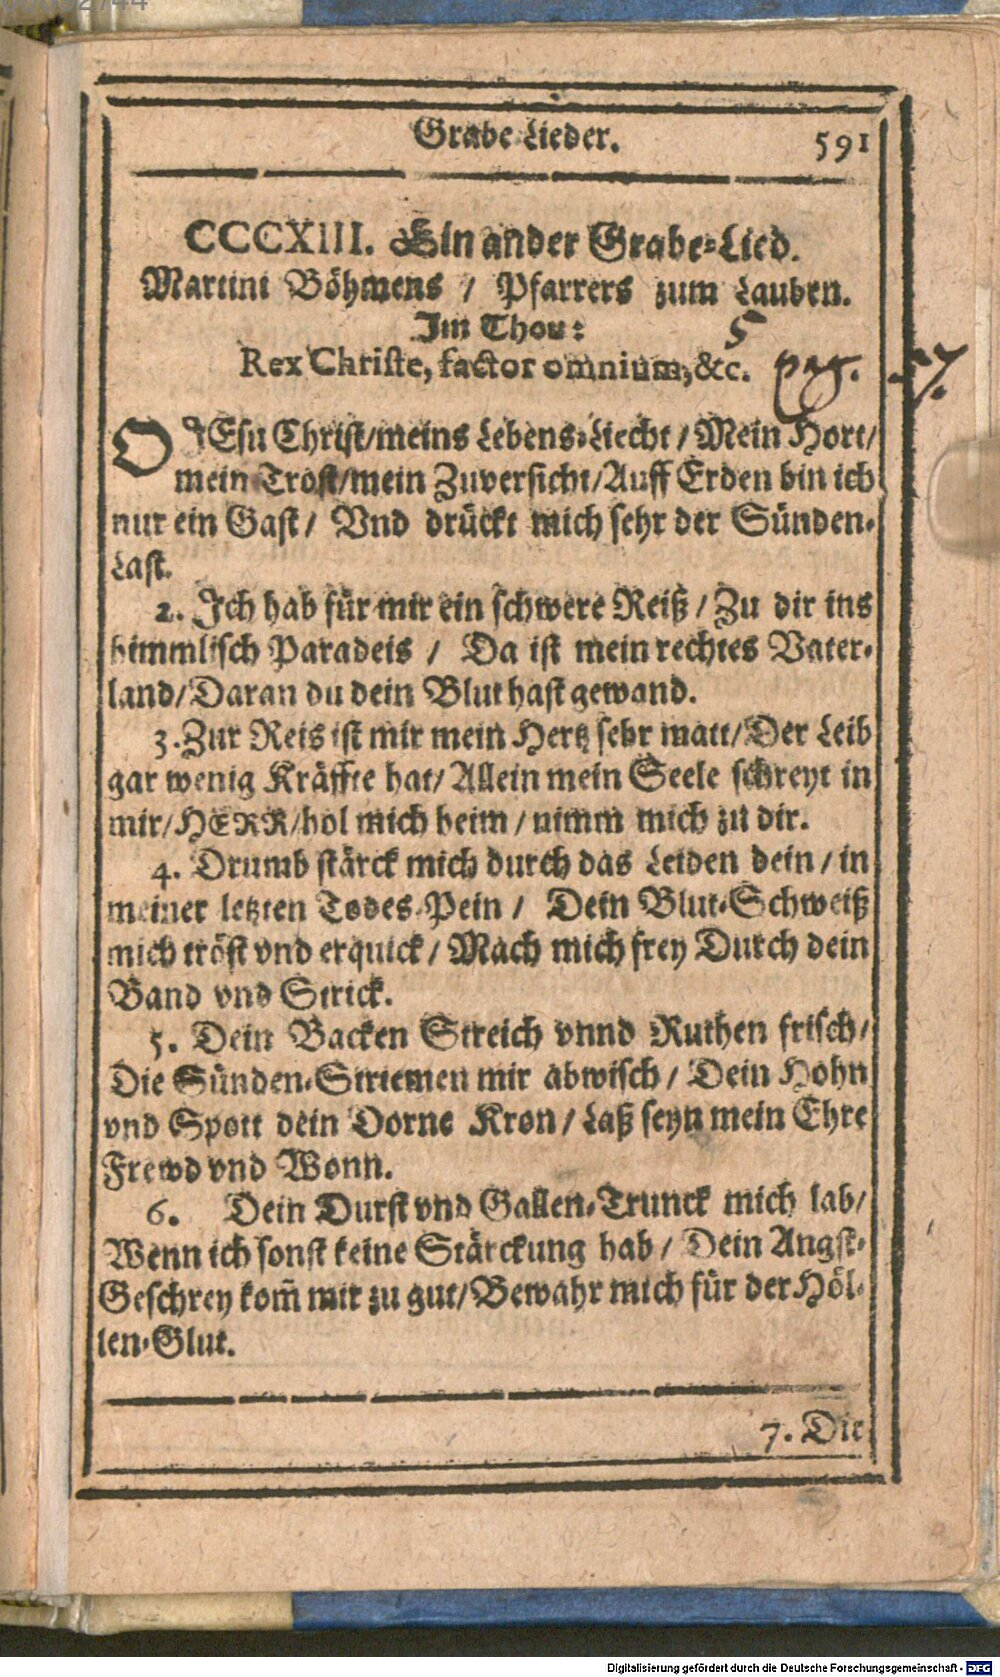 Grabe-Lieder. 591
CCCXIII. Ein ander Grabe-Lied.
Martini Böhmens / Pfarrers zum Lauben.
Im Thon:
Rex Christe, factor omnium, &c. pag.
O JEsu Christ/meins Lebens-Liecht / Mein Hort/
mein Trost/mein Zuversicht/Auff Erden bin ich
nur ein Gast / Vnd drückt mich sehr der Sünden-
Last.
2. Ich hab für mir ein schwere Reiß / Zu dir ins
himmlisch Paradeis / Da ist mein rechtes Vater-
land/Daran du dein Blut hast gewand.
3. Zur Reis ist mir mein Hertz sehr matt/Der Leib
gar wenig Kräffte hat/Allein mein Seele schreyt in
mir/HERR/hol mich heim / nimm mich zu dir.
4. Drumb stärck mich durch das Leiden dein / in
meiner letzten Todes-Pein / Dein Blut-Schweiß
mich tröst vnd erquick / Mach mich frey Durch dein
Band vnd Strick.
5. Dein Backen Streich vnnd Ruthen frisch/
Die Sünden-Striemen mir abwisch / Dein Hohn
vnd Spott dein Dorne Kron / Laß seyn mein Ehre
Frewd vnd Wonn.
6. Dein Durst vnd Gallen-Trunck mich lab/
Wenn ich sonst keine Stärckung hab / Dein Angst-
Geschrey kom̃ mir zu gut/Bewahr mich für der Höl-
len-Glut.
7. Die
Digitalisierung gefördert durch die Deutsche Forschungsgemeinschaft - DFG